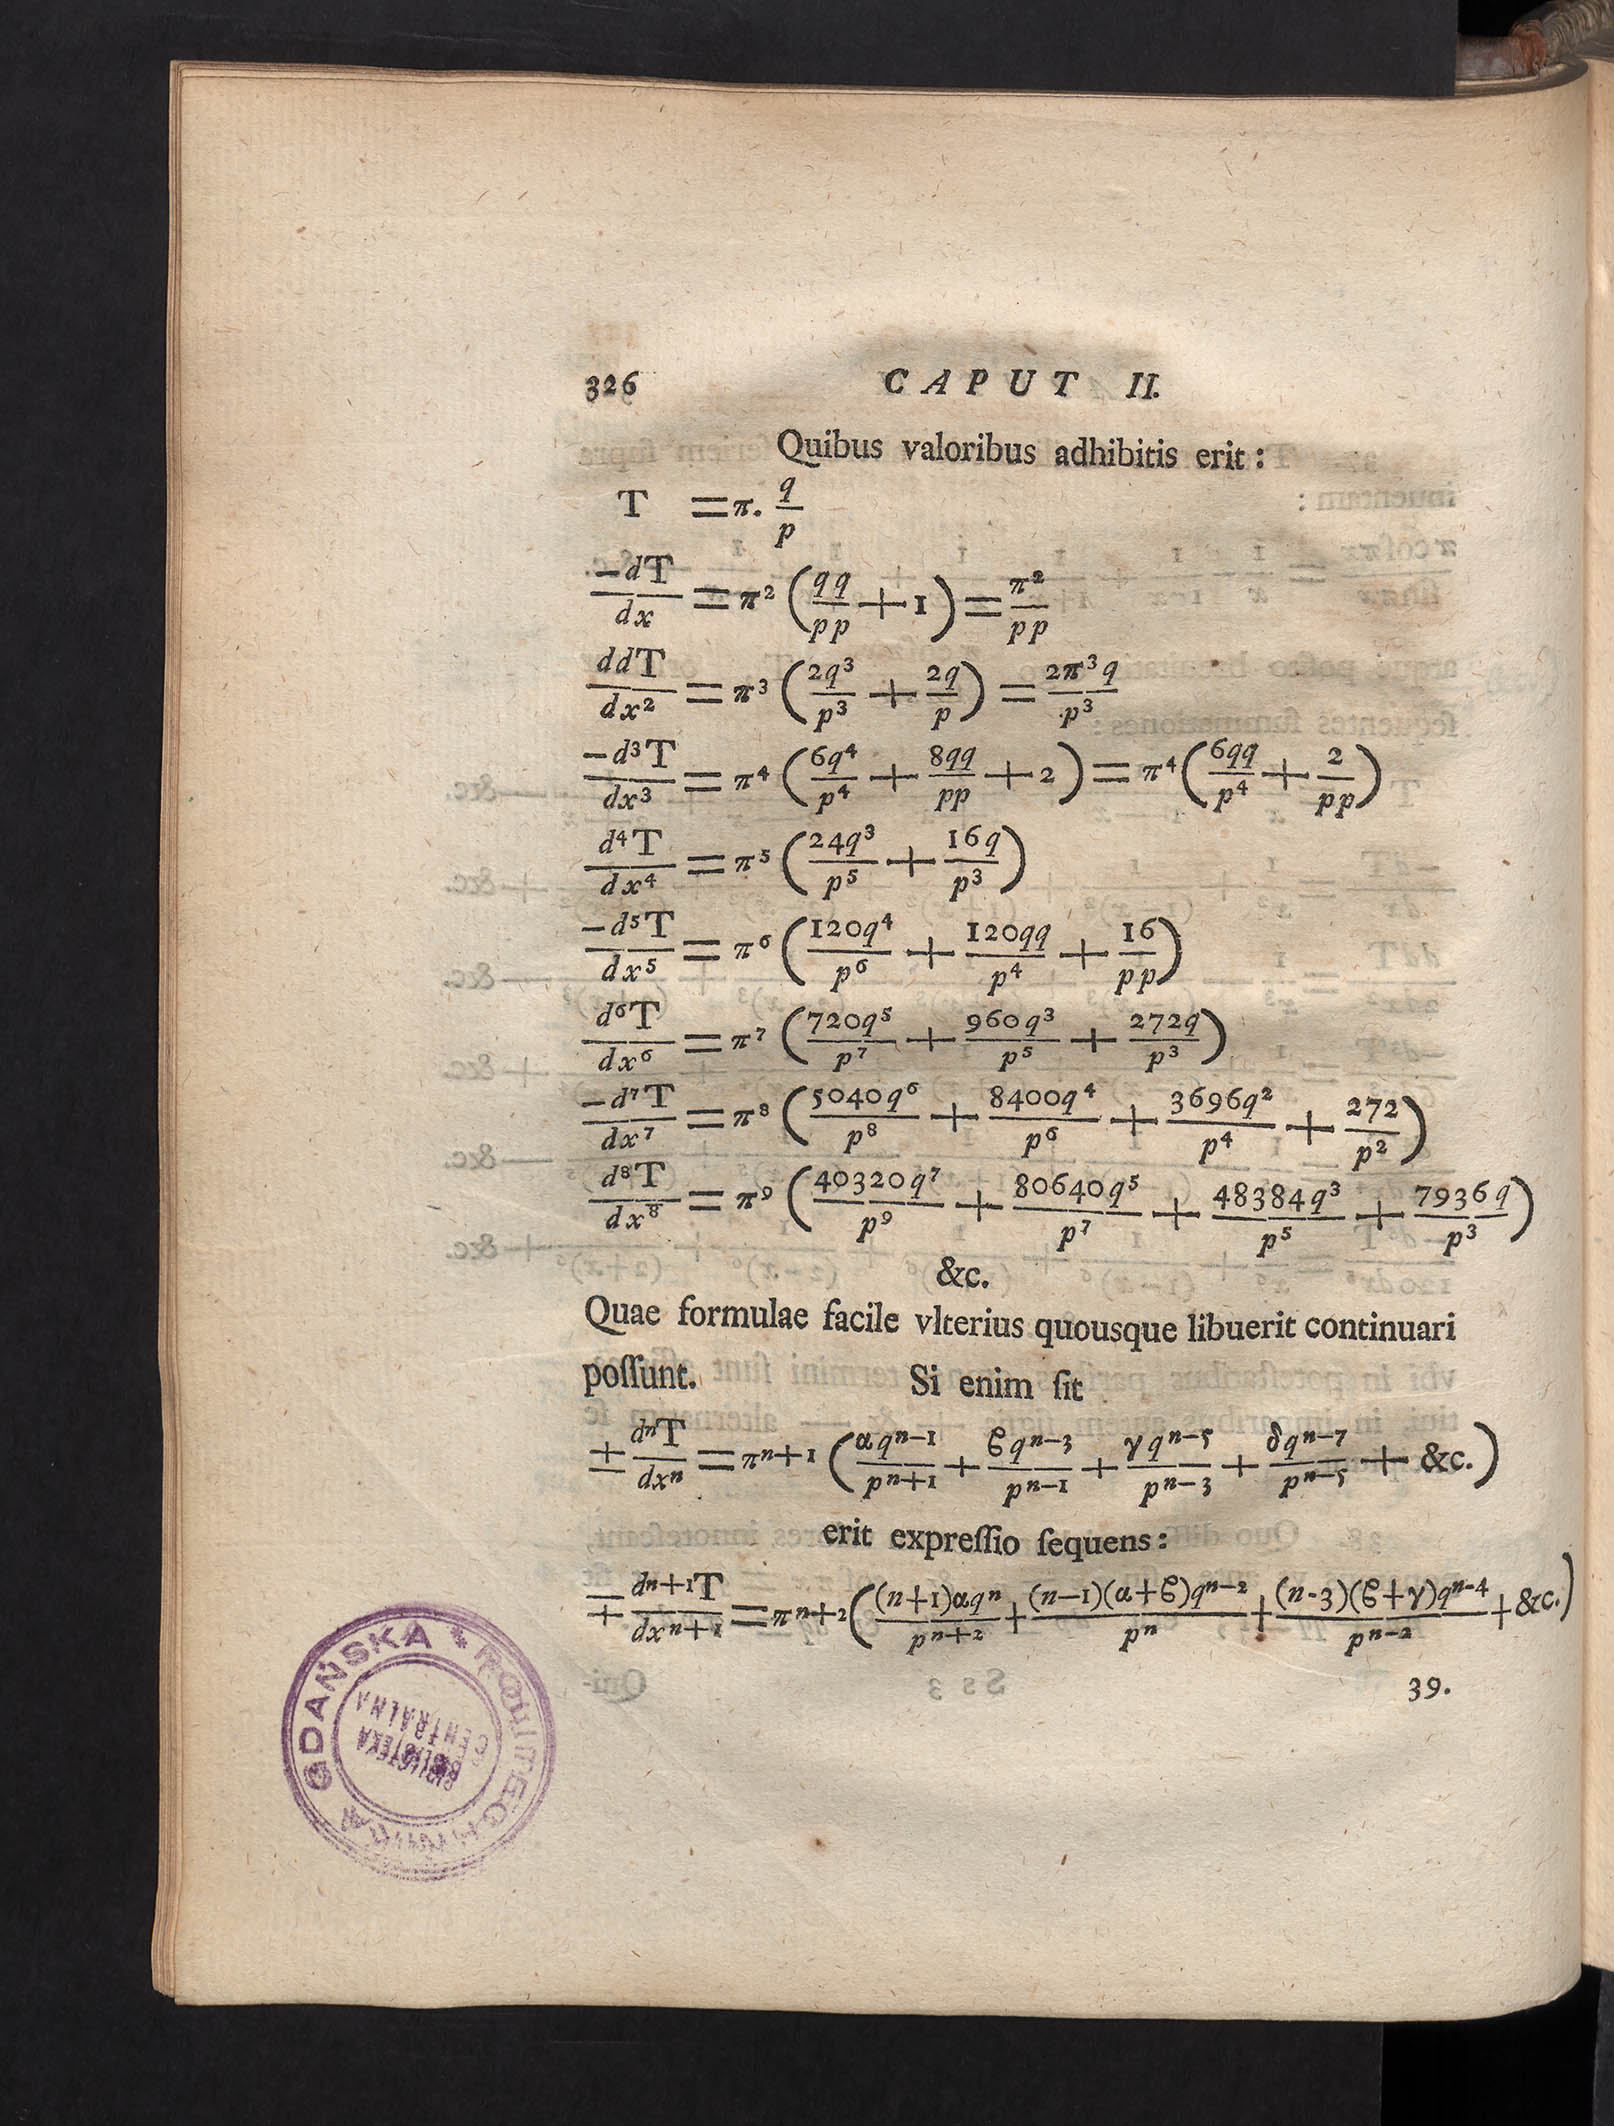 326 CAPUT II.
Quibus valoribus adhibitis erit:
T = π. q/p
−dT/dx = π² (qq/pp + 1) = π²/pp
ddT/dx² = π³ (2q³/p³ + 2q/p) = 2π³q/p³
−d³T/dx³ = π⁴ (6q⁴/p⁴ + 8qq/pp + 2) = π⁴ (6qq/p⁴ + 2/pp)
d⁴T/dx⁴ = π⁵ (24q³/p⁵ + 16q/p³)
−d⁵T/dx⁵ = π⁶ (120q⁴/p⁶ + 120qq/p⁴ + 16/pp)
d⁶T/dx⁶ = π⁷ (720q⁵/p⁷ + 960q³/p⁵ + 272q/p³)
−d⁷T/dx⁷ = π⁸ (5040q⁶/p⁸ + 8400q⁴/p⁶ + 3696q²/p⁴ + 272/p²)
d⁸T/dx⁸ = π⁹ (40320q⁷/p⁹ + 80640q⁵/p⁷ + 48384q³/p⁵ + 7936q/p³)
&c.
Quae formulae facile vlterius quousque libuerit continuari
poſſunt. Si enim ſit
± dⁿT/dxⁿ = πⁿ⁺¹ (αqⁿ⁻¹/pⁿ⁺¹ + ϐqⁿ⁻³/pⁿ⁻¹ + γqⁿ⁻⁵/pⁿ⁻³ + δqⁿ⁻⁷/pⁿ⁻⁵ + &c.)
erit expreſſio ſequens:
∓ dⁿ⁺¹T/dxⁿ⁺¹ = πⁿ⁺² ((n+1)αqⁿ/pⁿ⁺² + (n−1)(α+ϐ)qⁿ⁻²/pⁿ + (n-3)(ϐ+γ)qⁿ⁻⁴/pⁿ⁻² + &c.)
39.
POLITECHNIKA GDAŃSKA
BIBLIOTEKA
CENTRALNA